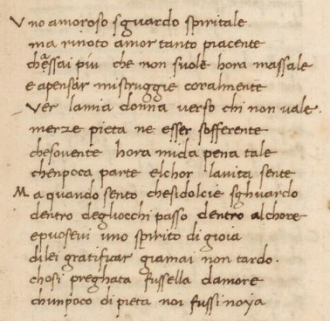 Vno amoroso sguardo spiritale
ma rinoto amor tanto piacente
chassai piu che non suole hora massale
e apensar mistruggie coralmente
Ver lamia donna verso chi non vale
merze pieta ne esser sofferente
chesouente hora mida pena tale
chenpoca parte elchor lauita sente
Ma quando sento chesidolcie sghuardo
dentro degliocchi passo dentro alchore
eposeui uno spirito di gioia
dilei gratificar giamai non tardo.
chosi preghata fussella damore
chunpoco di pieta noi fussi noya